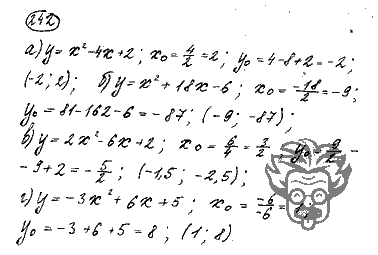 242
а) y = x² - 4x + 2; x₀ = 4/2 = 2; y₀ = 4 - 8 + 2 = -2;
(-2; 2); б) y = x² + 18x - 6; x₀ = -18/2 = -9;
y₀ = 81 - 162 - 6 = -87; (-9; -87);
в) y = 2x² - 6x + 2; x₀ = 6/4 = 3/2; y₀ = 9/2 -
- 9 + 2 = -5/2; (-1,5; -2,5);
г) y = -3x² + 6x + 5; x₀ = -6/-6 = 1;
y₀ = -3 + 6 + 5 = 8; (1; 8).